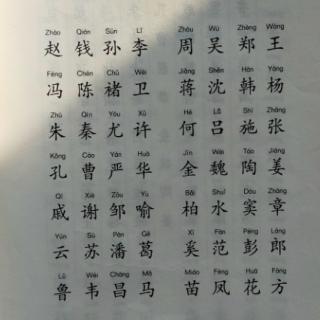 Zhào Qián Sūn Lǐ Zhōu Wú Zhèng Wáng
赵 钱 孙 李 周 吴 郑 王
Féng Chén Chǔ Wèi Jiǎng Shěn Hán Yáng
冯 陈 褚 卫 蒋 沈 韩 杨
Zhū Qín Yóu Xǔ Hé Lǚ Shī Zhāng
朱 秦 尤 许 何 吕 施 张
Kǒng Cáo Yán Huà Jīn Wèi Táo Jiāng
孔 曹 严 华 金 魏 陶 姜
Qī Xiè Zōu Yù Bǎi Shuǐ Dòu Zhāng
戚 谢 邹 喻 柏 水 窦 章
Yún Sū Pān Gě Xī Fàn Péng Láng
云 苏 潘 葛 奚 范 彭 郎
Lǔ Wéi Chāng Mǎ Miáo Fèng Huā Fāng
鲁 韦 昌 马 苗 凤 花 方